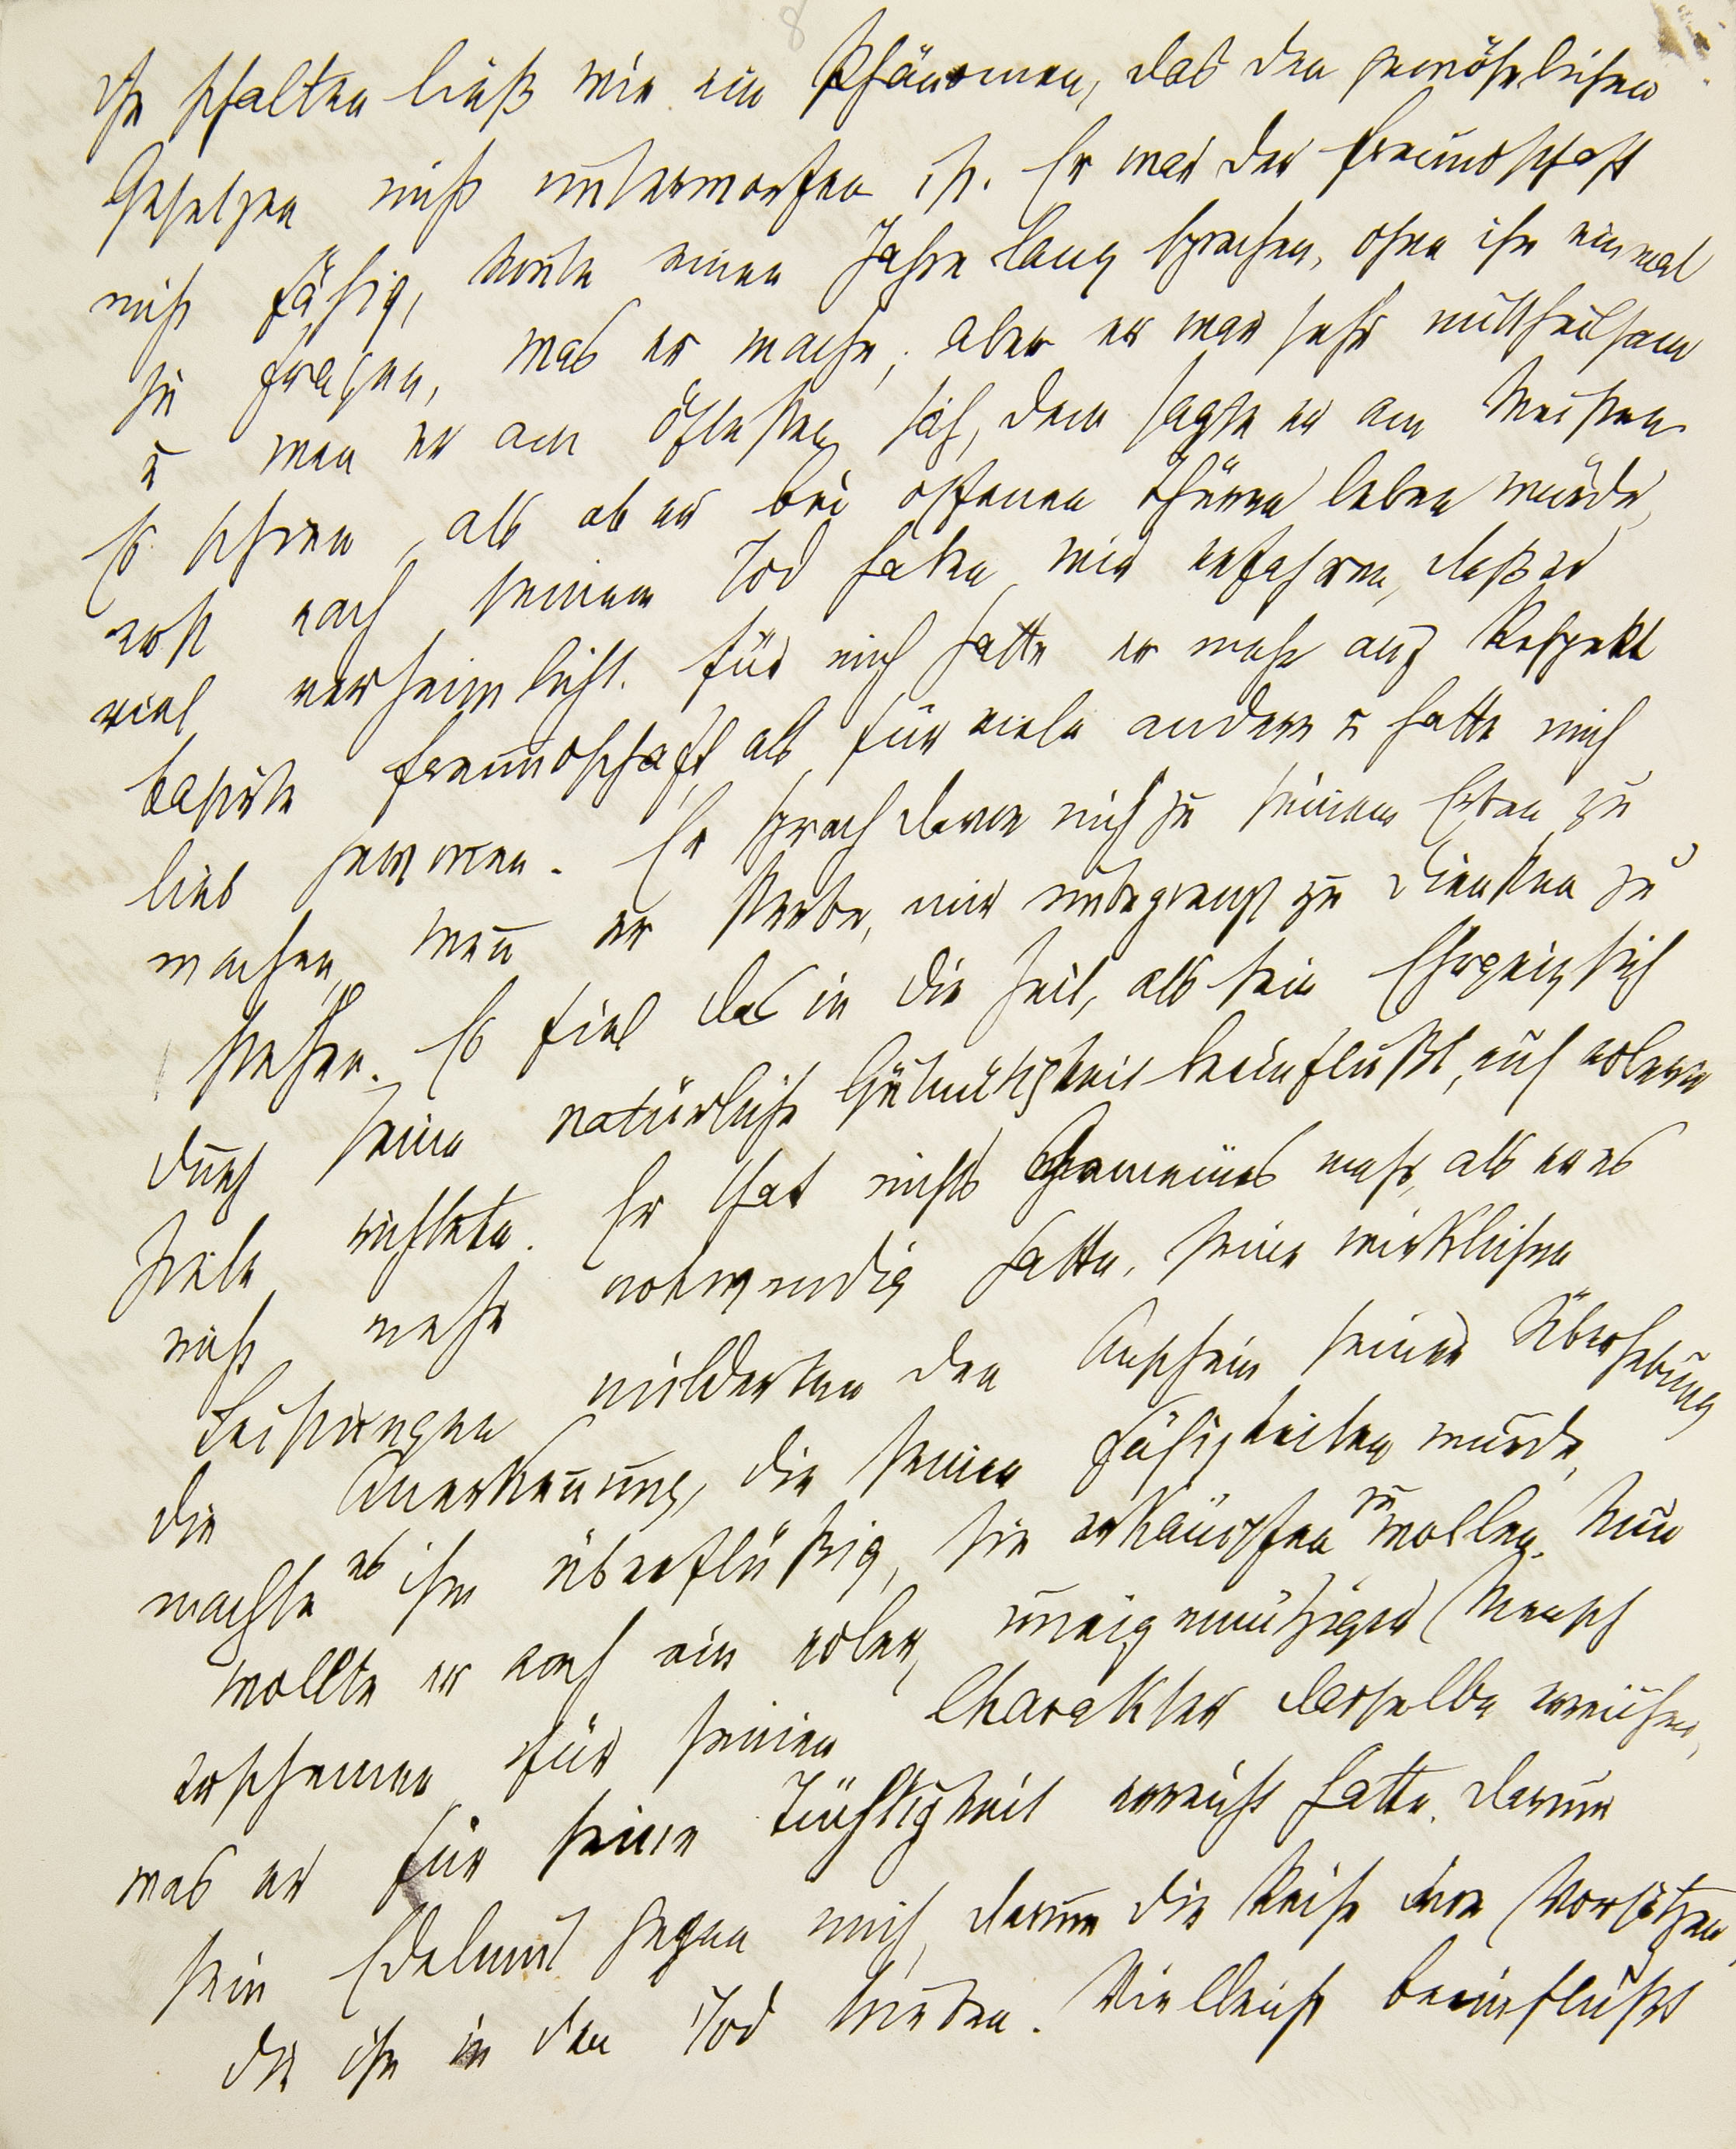 8
ihn schalten ließ wie ein Phänomen, das den gewöhnlichen
Gesetzen nicht unterworfen ist. Er war der Freundschaft
nicht fähig, konnte einen Jahre lang sprechen, ohne ihn einmal
zu fragen, was er mache, aber er war sehr mittheilsam
u wen er am öftesten sah, dem sagte er am Meisten
Es schien, als ob er bei offenen Thüren leben würde,
erst nach seinem Tod haben wir erfahren, daß er
viel verheimlicht. Für mich hatte er mehr auf Respekt
basirte Freundschaft als für viele andere u hatte mich
lieb gewonnen. Er sprach davon mich zu seinem Erben zu
machen, wenn er sterbe, mir unbegrenzt zu Diensten zu
stehen. Es fiel das in die Zeit, als sein Ehrgeiz sich
durch seine natürliche Gütmütigkeit beeinflußt, auf edlere
Ziele richtete. Er that nichts Gemeines mehr, als er es
nicht mehr notwendig hatte, seine wirklichen
Leistungen milderten den Anschein seiner Überhebung
die Anerkennung, die seinen Fähigkeiten wurde,
machte es ihm überflüßig, sie erkämpfen zu wollen. Nun
wollte er auch ein edler, uneigennütziger Mensch
erscheinen für seinen Charakter dasselbe erreichen,
was er für seine Tüchtigkeit erreicht hatte. Darum
sein Edelmut gegen mich, darum die Reihe von Vorsätzen,
die ihn in den Tod trieben. Vielleicht beeinflußt